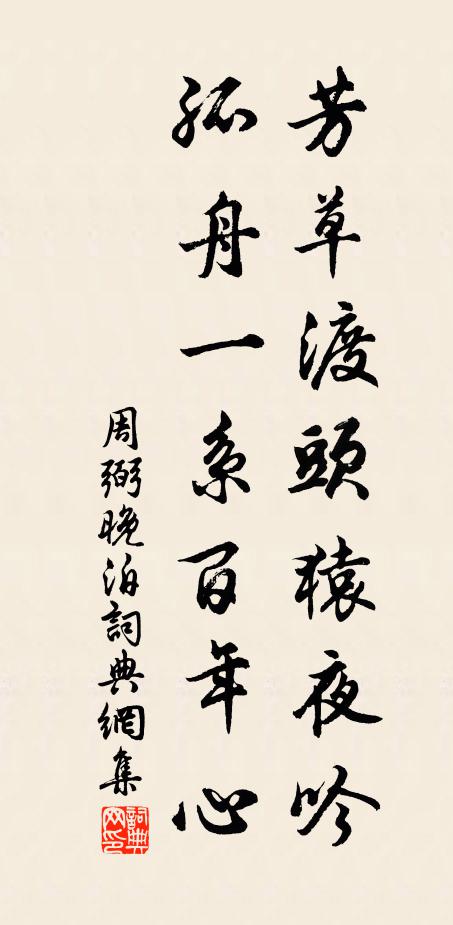 芳草渡頭猿夜吟
孤舟一系百年心
周弼晚泊詞典網集
詞典網印